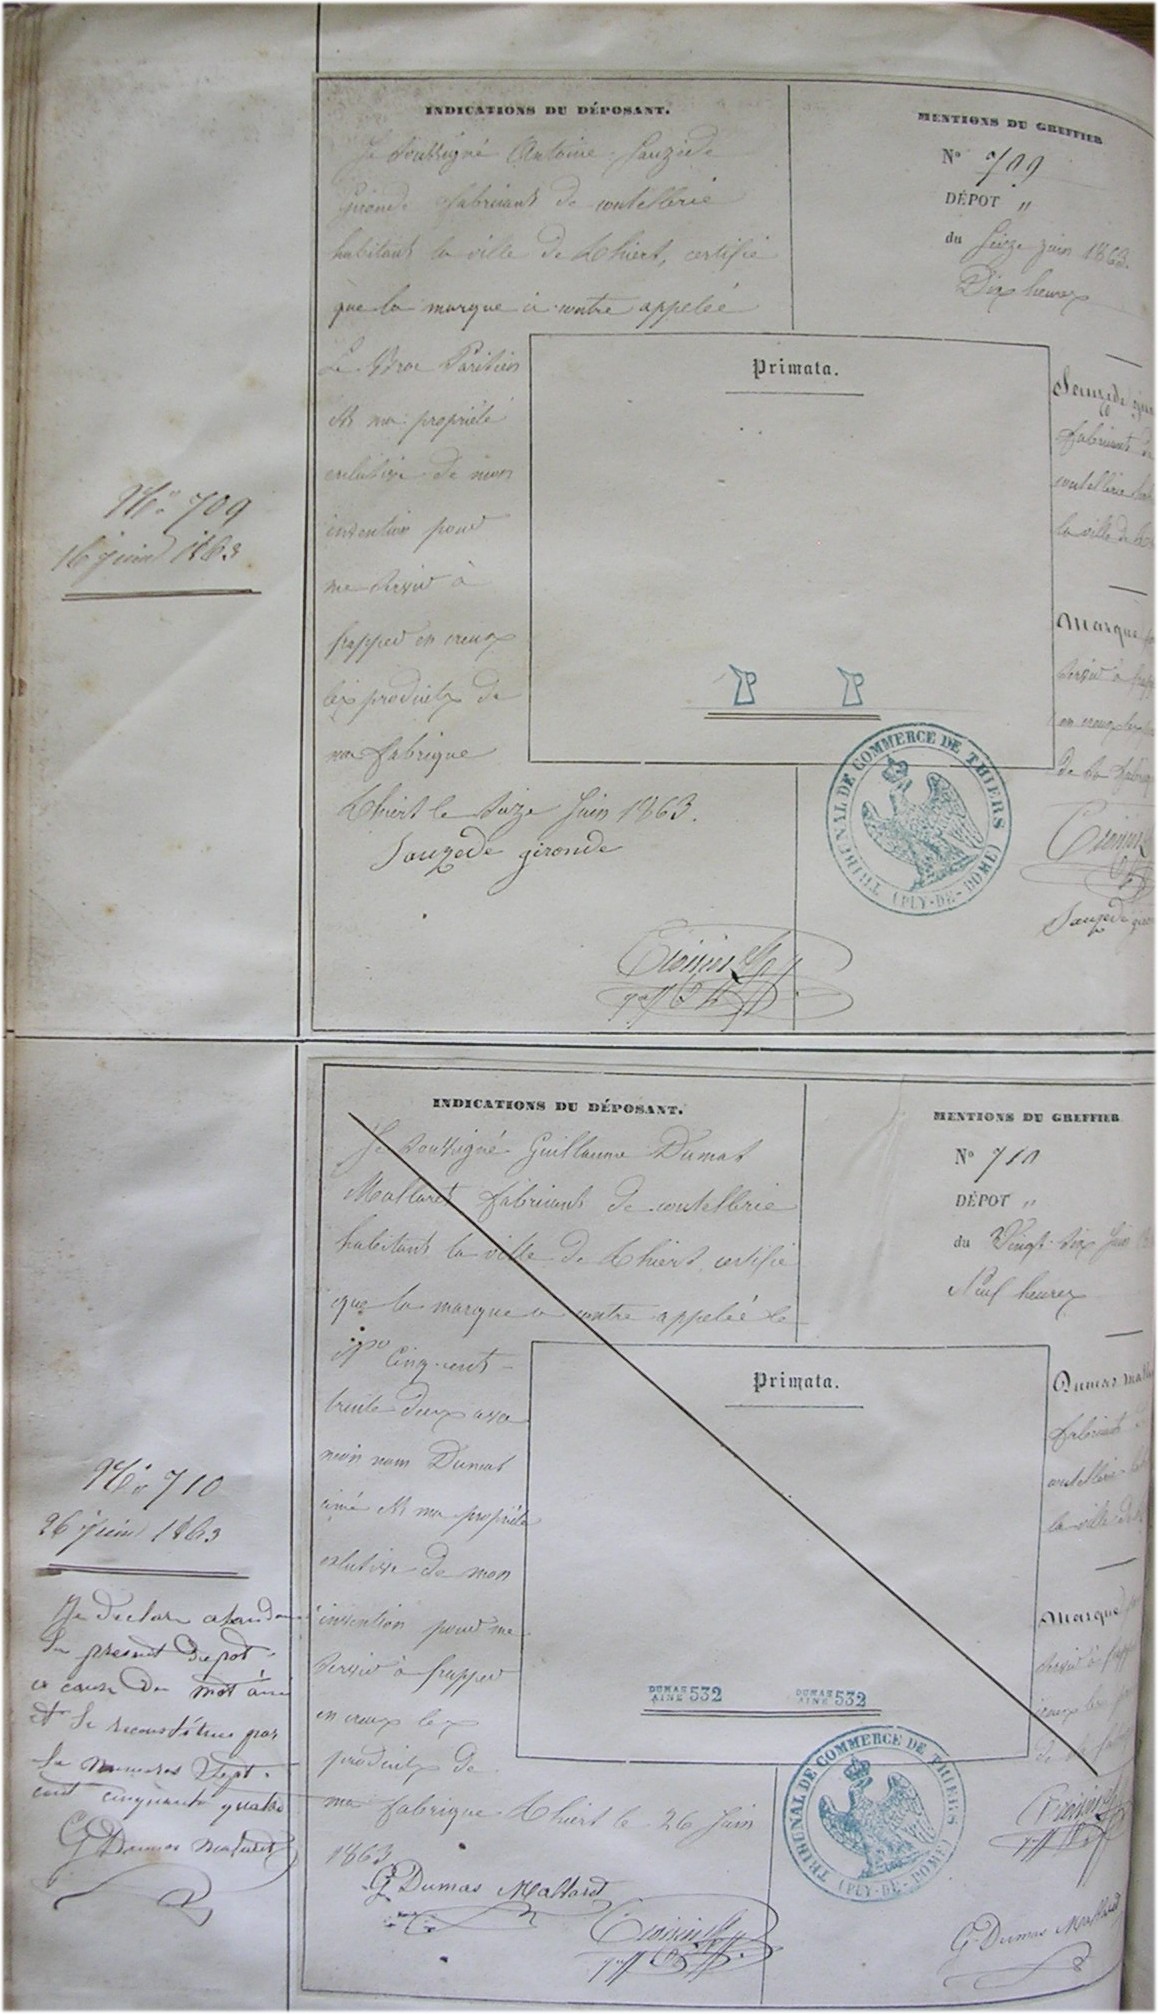 INDICATIONS DU DÉPOSANT.
Je soussigné Antoine Sauzède
Gironde fabricant de coutellerie
habitant la ville de Thiers, certifie
que la marque ci contre appelée
Le Broc Parisien
est ma propriété
exclusive de mon
invention pour
me servir à
frapper en creux
les produits de
ma fabrique
Thiers le seize Juin 1863.
Sauzede gironde
MENTIONS DU GREFFIER
N° 709
DÉPOT "
du Seize juin 1863.
Dix heures
Primata.
Sauzede
fabricant de
coutellerie
la ville de
Marque
servir à
en creux
de sa
TRIBUNAL DE COMMERCE DE THIERS
(PUY-DE-DOME)
Sauzede
N° 709
16 juin 1863
INDICATIONS DU DÉPOSANT.
Je soussigné Guillaume Dumas
Mallaret fabricant de coutellerie
habitant la ville de Thiers, certifie
que la marque ci contre appelée le
n° Cinq-cent-
trente deux avec
mon nom Dumas
ainé est ma propriété
exclusive de mon
invention pour me
servir à frapper
en creux les
produits de
ma fabrique Thiers le 26 Juin
1863
G Dumas Mallaret
MENTIONS DU GREFFIER
N° 710
DÉPOT "
du Vingt-six Juin
Neuf heures
Primata.
DUMAS
AINE 532
DUMAS
AINE 532
Dumas
fabricant
coutellerie
la ville de
Marque
servir à
creux les
de sa
TRIBUNAL DE COMMERCE DE THIERS
(PUY-DE-DOME)
G. Dumas Mallaret
N° 710
26 juin 1863
Je declare
le present depot
a cause du mot
et le reconstitue par
le numeros sept
cent cinquante quatre
G Dumas Mallaret